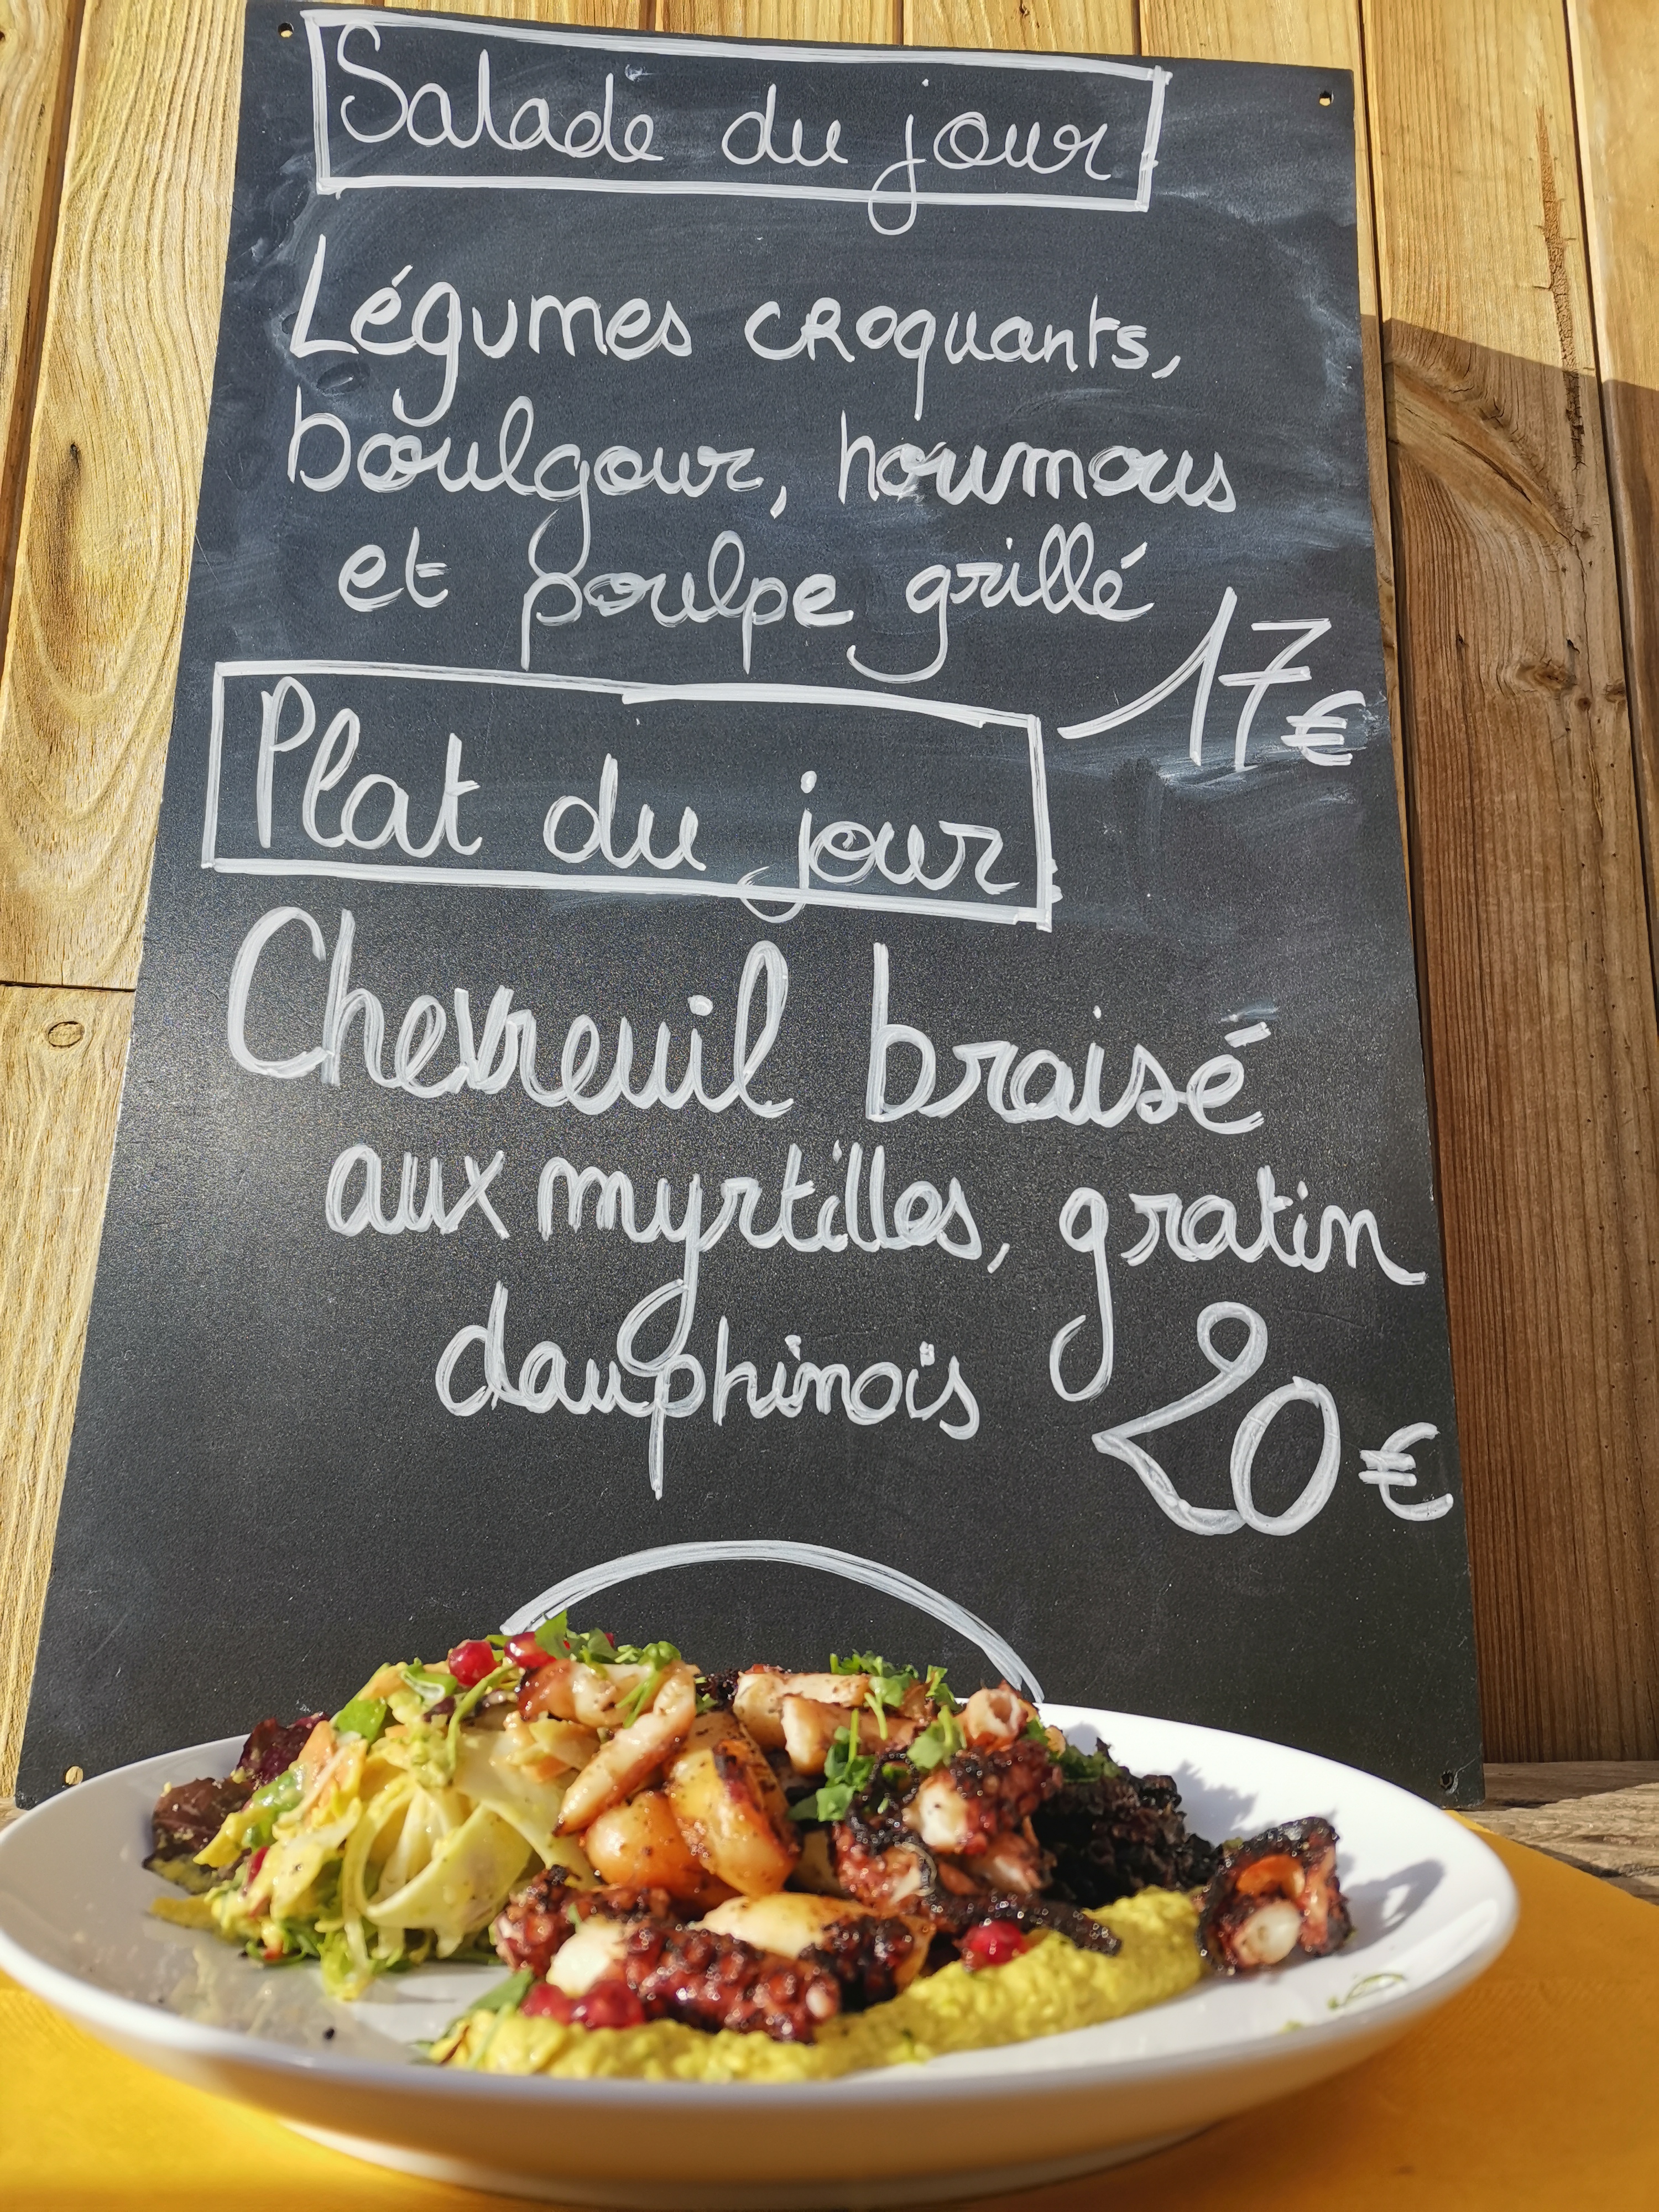 Salade du jour
Légumes cRoquants,
boulgour, houmous
et poulpe grillé
17€
Plat du jour
Chevreuil braisé
aux myrtilles, gratin
dauphinois
20€